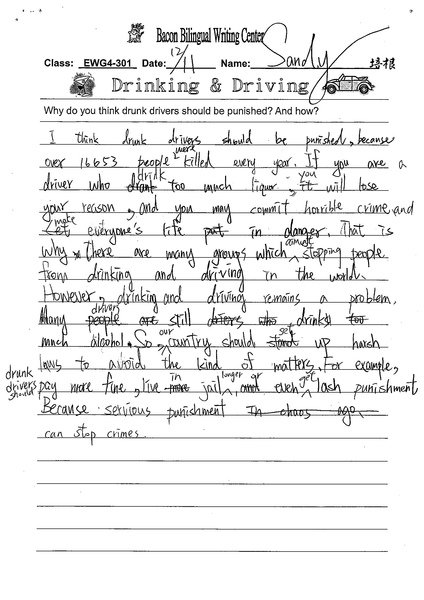 Bacon Bilingual Writing Center
Class: EWG4-301 Date: 12/11 Name: Sandy 培根
Drinking & Driving
Why do you think drunk drivers should be punished? And how?
I think drunk drivers should be punished, because
were
over 16653 people killed every year. If you are a
drink you
driver who drant too much liquor, it will lose
your reason, and you may commit horrible crime, and
make
Let everyone's life put in danger. That is
aimed
why there are many groups which stopping people
from drinking and driving in the world.
However, drinking and driving remains a problem.
drivers
Many people are still who drinks too
our set
much alcohol. So, country should stand up harsh
laws to avoid the kind of matters. For example,
drunk drivers should
in longer or get
pay more fine, live more jail, and even lash punishment
Because servious punishment in chaos ago
can stop crimes.